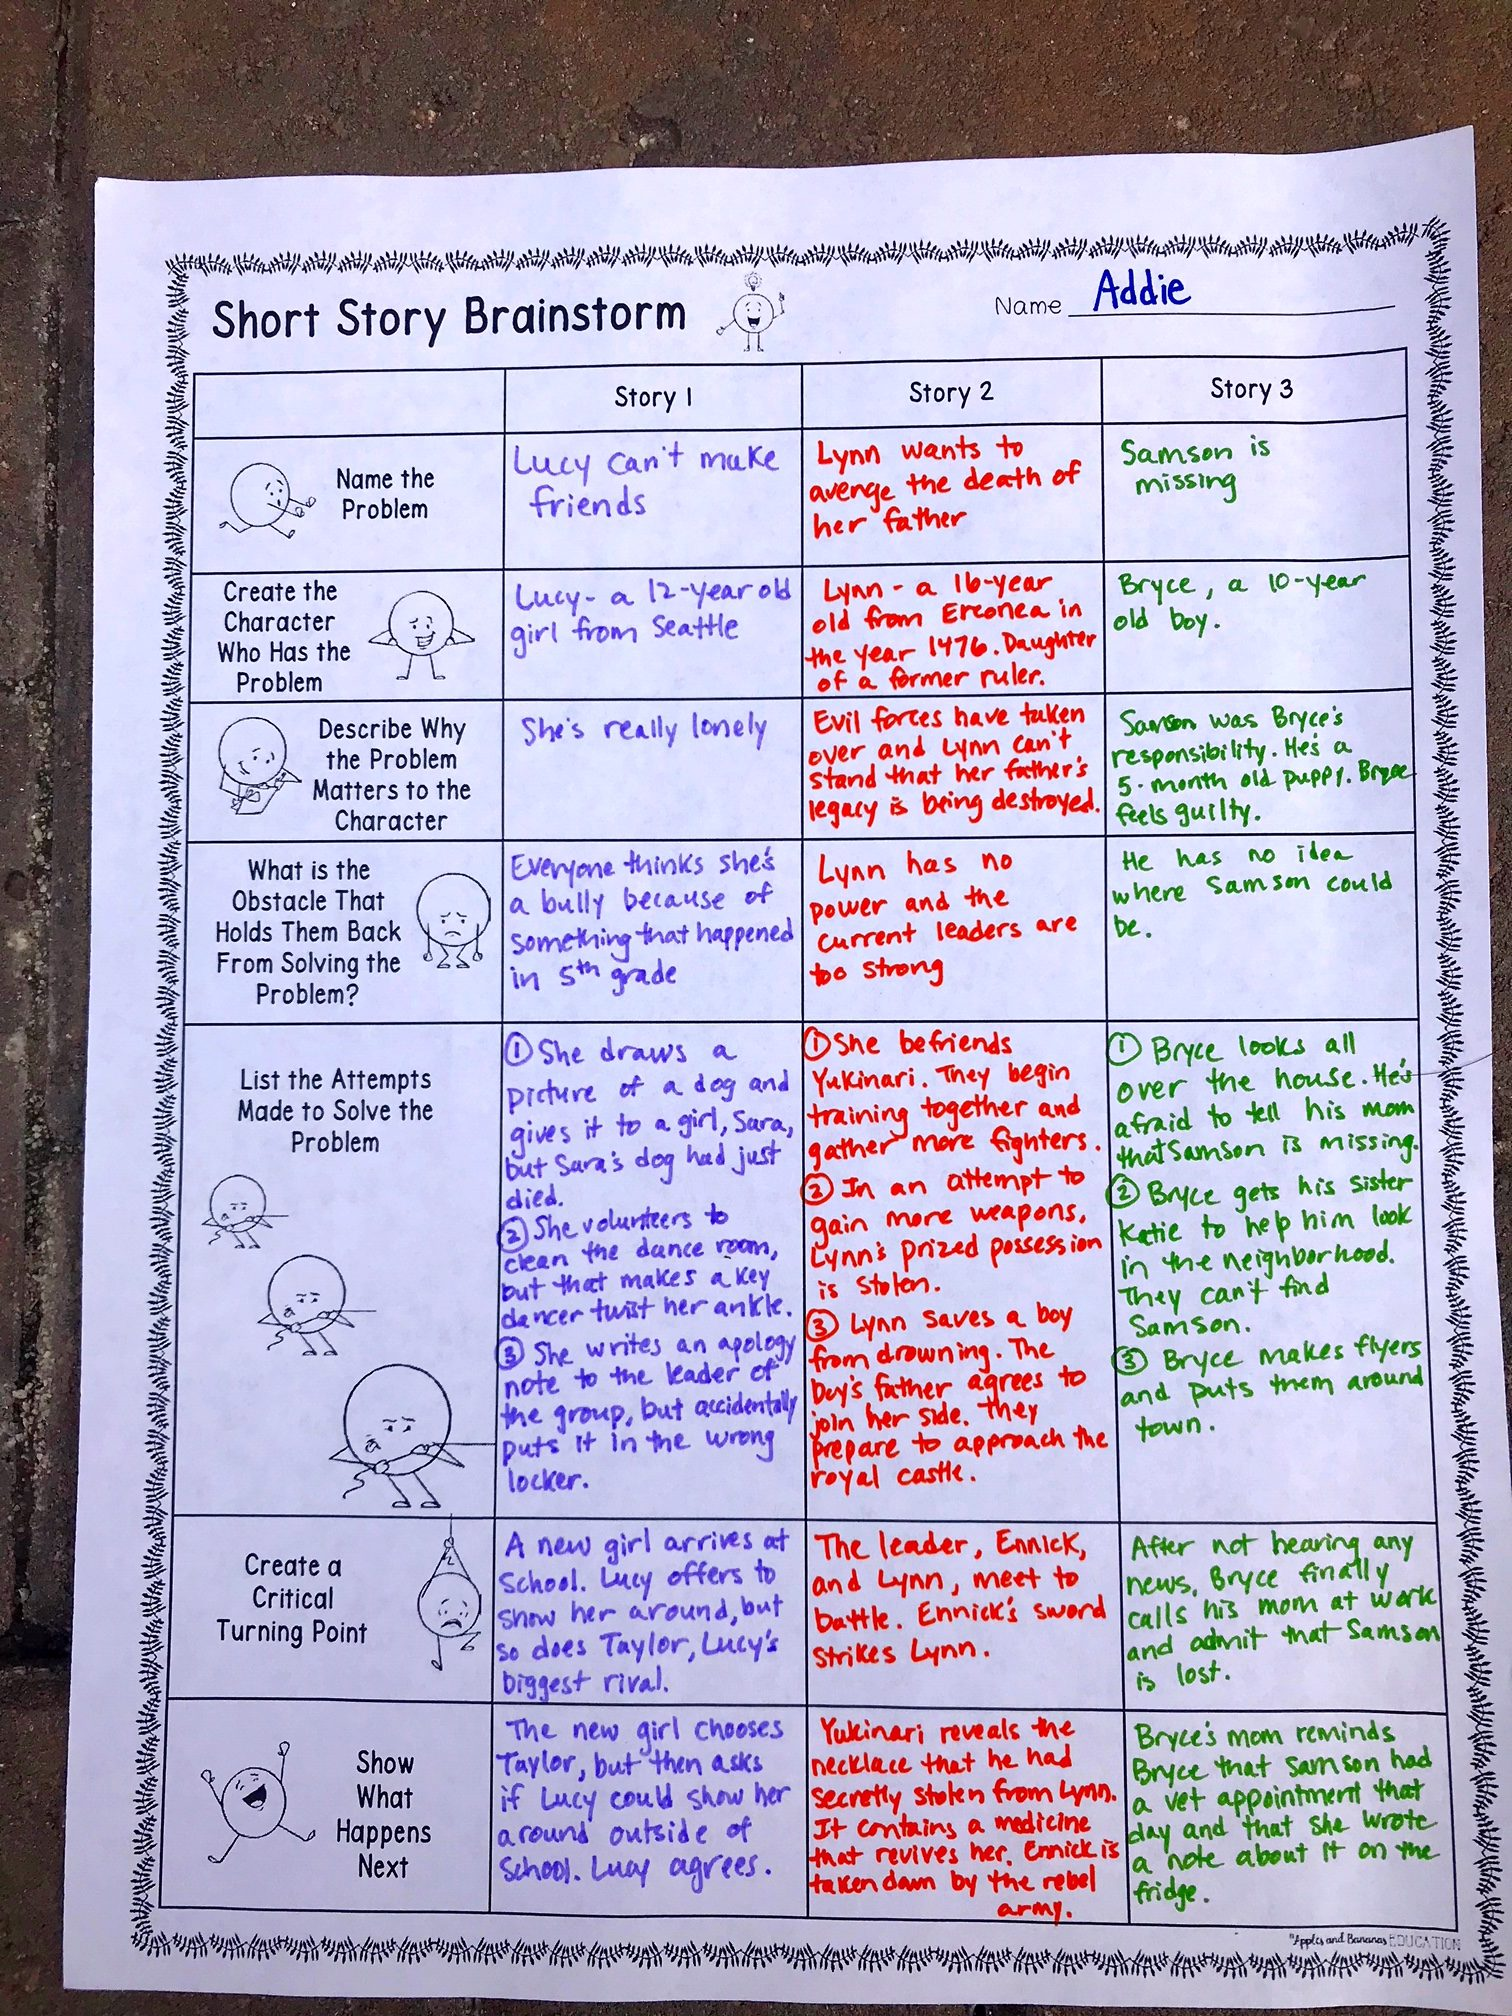 Short Story Brainstorm
Name Addie
Story 1
Story 2
Story 3
Name the
Problem
Lucy can't make
friends
Lynn wants to
avenge the death of
her father
Samson is
missing
Create the
Character
Who Has the
Problem
Lucy- a 12-year old
girl from Seattle
Lynn - a 16-year
old from Erconea in
the year 1476. Daughter
of a former ruler.
Bryce, a 10-year
old boy.
Describe Why
the Problem
Matters to the
Character
She's really lonely
Evil forces have taken
over and Lynn can't
stand that her father's
legacy is being destroyed.
Samson was Bryce's
responsibility. He's a
5-month old puppy. Bryce
feels guilty.
What is the
Obstacle That
Holds Them Back
From Solving the
Problem?
Everyone thinks she's
a bully because of
something that happened
in 5th grade
Lynn has no
power and the
current leaders are
too strong
He has no idea
where Samson could
be.
List the Attempts
Made to Solve the
Problem
① She draws a
picture of a dog and
gives it to a girl, Sara,
but Sara's dog had just
died.
② She volunteers to
clean the dance room,
but that makes a key
dancer twist her ankle.
③ She writes an apology
note to the leader of
the group, but accidentally
puts it in the wrong
locker.
① She befriends
Yukinari. They begin
training together and
gather more fighters.
② In an attempt to
gain more weapons,
Lynn's prized possession
is stolen.
③ Lynn saves a boy
from drowning. The
boy's father agrees to
join her side. They
prepare to approach the
royal castle.
① Bryce looks all
over the house. He's
afraid to tell his mom
that Samson is missing.
② Bryce gets his sister
Katie to help him look
in the neighborhood.
They can't find
Samson.
③ Bryce makes flyers
and puts them around
town.
Create a
Critical
Turning Point
A new girl arrives at
School. Lucy offers to
show her around, but
so does Taylor, Lucy's
biggest rival.
The leader, Ennick,
and Lynn, meet to
battle. Ennick's sword
strikes Lynn.
After not hearing any
news, Bryce finally
calls his mom at work
and admit that Samson
is lost.
Show
What
Happens
Next
The new girl chooses
Taylor, but then asks
if Lucy could show her
around outside of
School. Lucy agrees.
Yukinari reveals the
necklace that he had
secretly stolen from Lynn.
It contains a medicine
that revives her. Ennick is
taken down by the rebel
army.
Bryce's mom reminds
Bryce that Samson had
a vet appointment that
day and that she wrote
a note about it on the
fridge.
Apples and Bananas EDUCATION